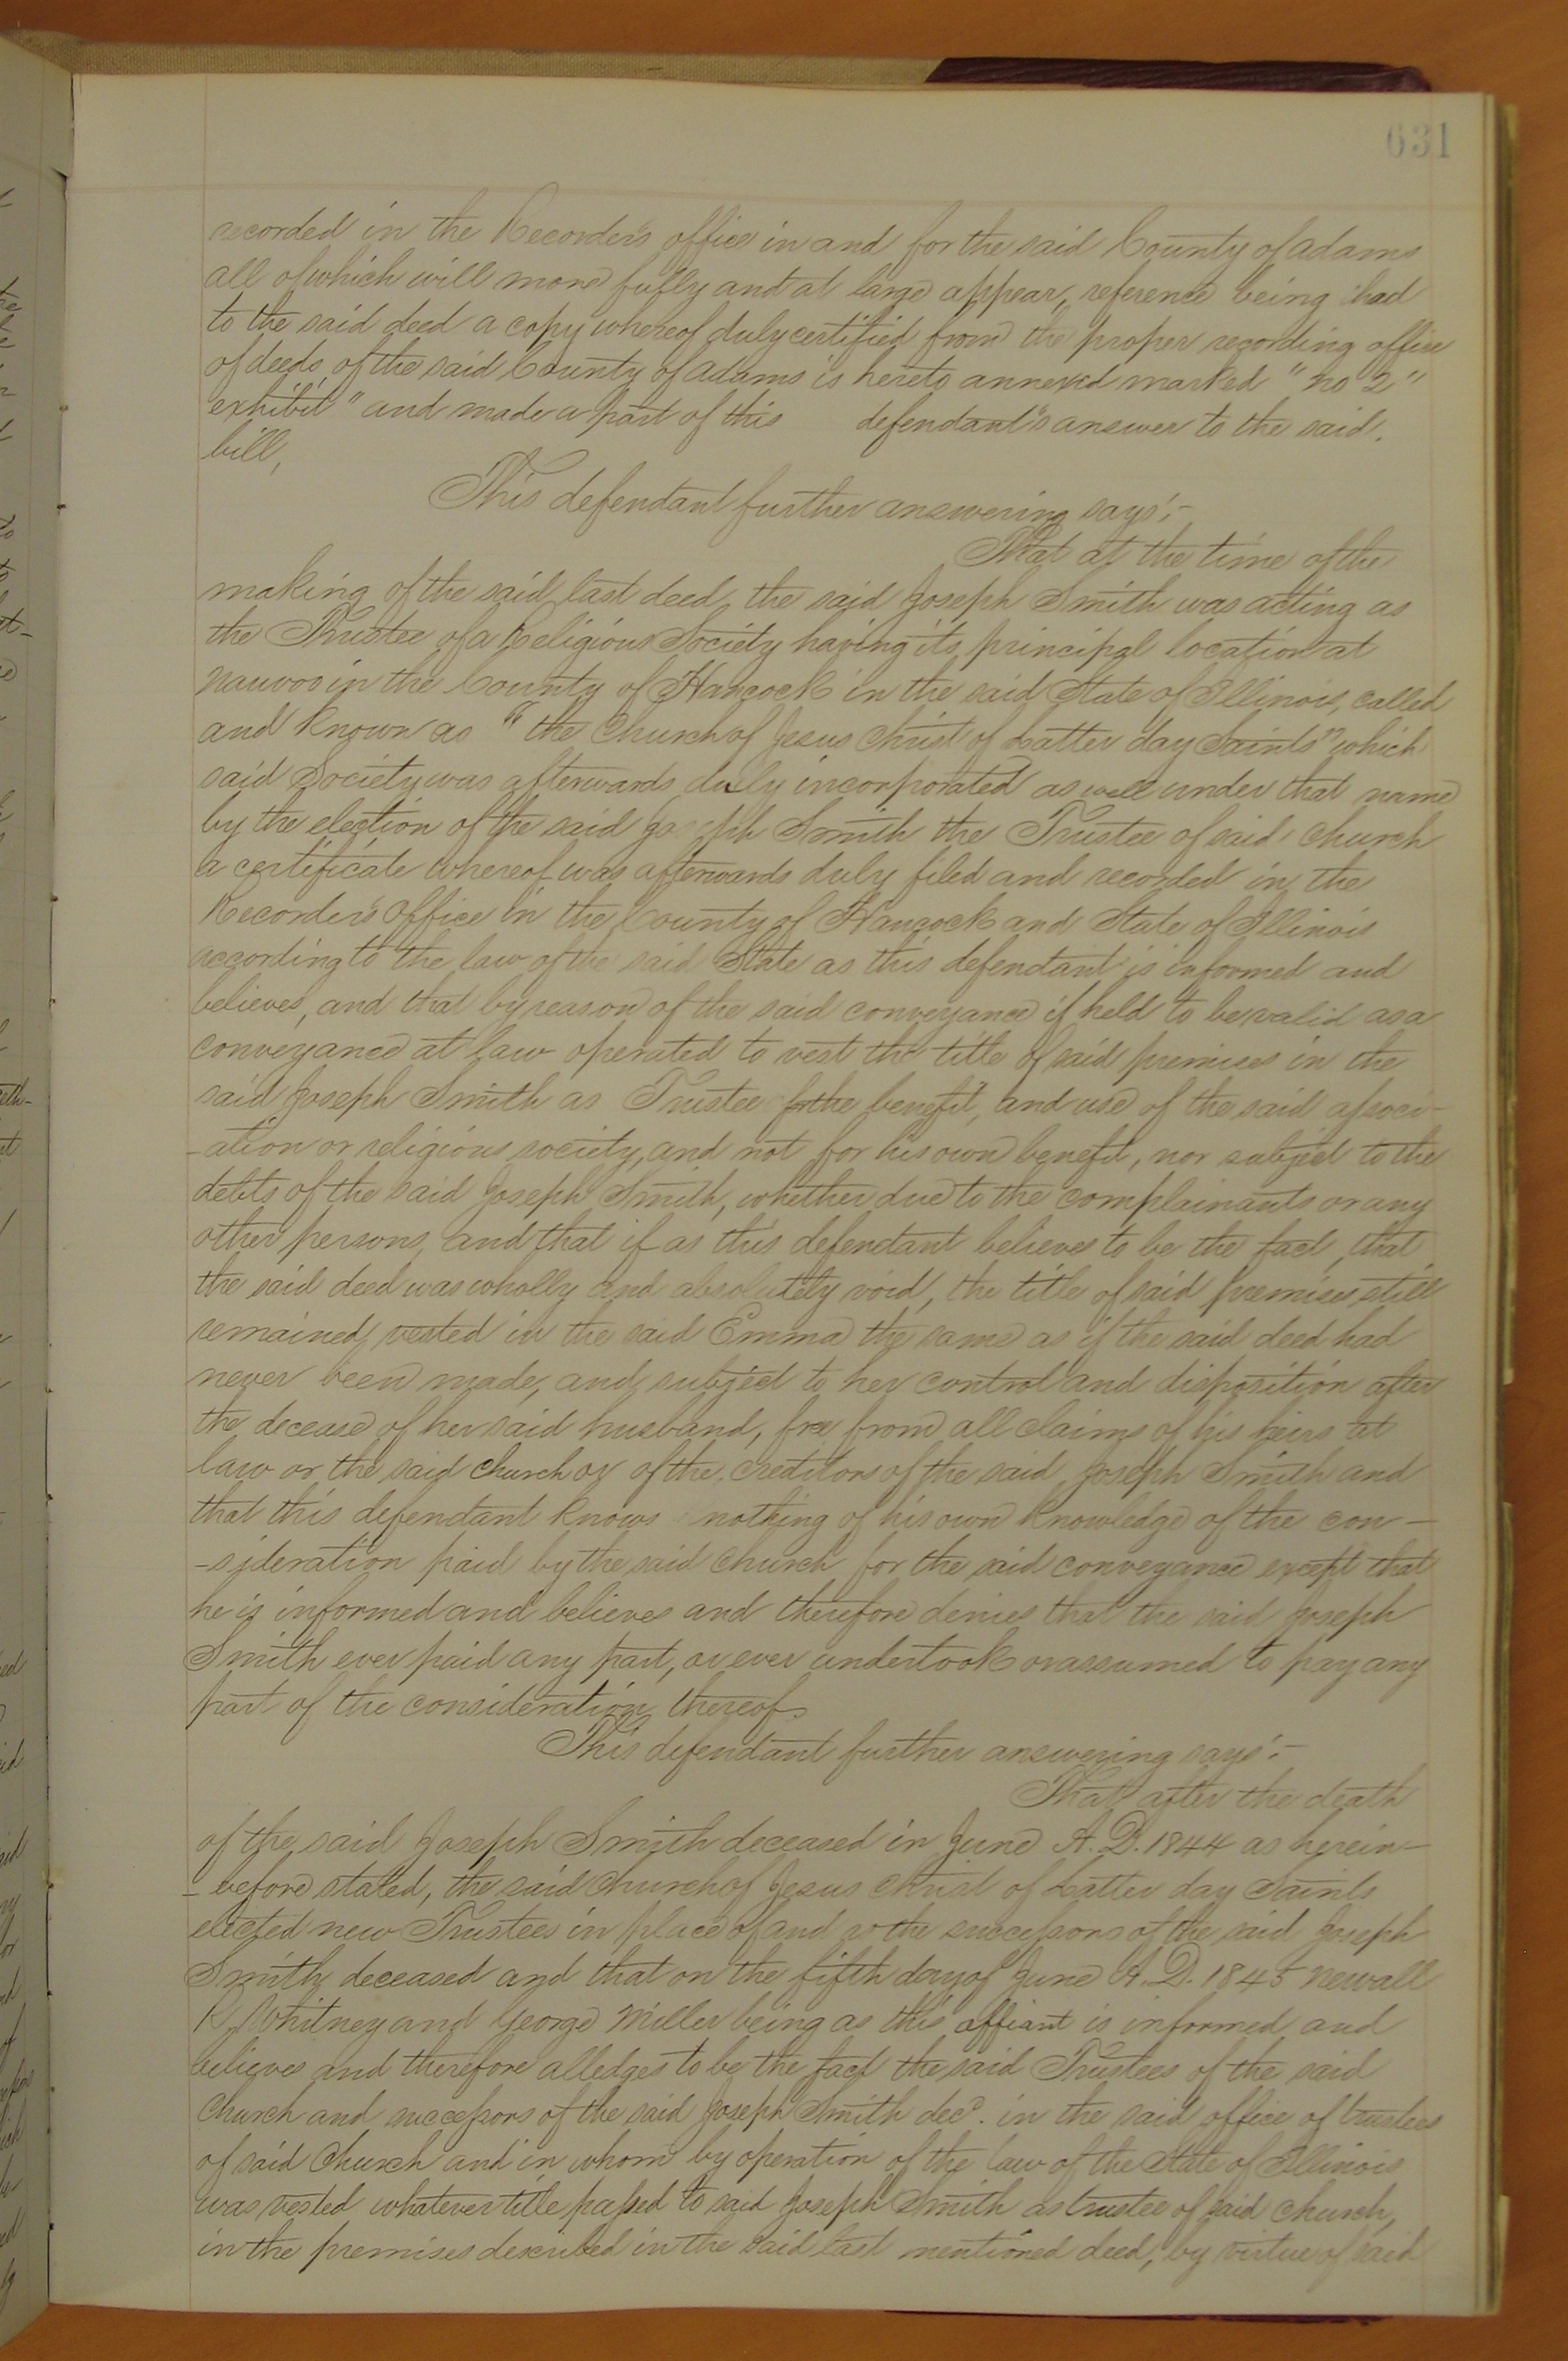 631
recorded in the Recorder's office in and for the said County of Adams
all of which will more fully and at large appear, reference being had
to the said deed a copy whereof duly certified from the proper recording office
of deeds, of the said County of Adams is hereto annexed marked "no 2"
exhibit" and made a part of this defendant's answer to the said.
bill,
This defendant further answering says:-
That at the time of the
making of the said last deed, the said Joseph Smith was acting as
the Trustee of a Religious Society having its principal location at
Nauvoo in the County of Hancock in the said State of Illinois, called
and known as "the Church of Jesus Christ of Latter day Saints" which
said Society was afterwards duly incorporated as well under that name
by the election of the said Joseph Smith the Trustee of said Church
a certificate whereof was afterwards duly filed and recorded in the
Recorder's Office in the County of Hancock and State of Illinois
according to the law of the said State as this defendant is informed and
believes, and that by reason of the said conveyance if held to be valid as a
conveyance at law operated to vest the title of said premises in the
said Joseph Smith as Trustee for the benefit, and use of the said associ-
-ation or religious society, and not for his own benefit, nor subject to the
debts of the said Joseph Smith, whether due to the complainants or any
other persons, and that if as this defendant believes to be the fact, that
the said deed was wholly and absolutely void, the title of said premises still
remained vested in the said Emma the same as if the said deed had
never been made, and subject to her control and disposition after
the decease of her said husband, free from all claims of his heirs at
law or the said church or of the creditors of the said Joseph Smith and
that this defendant knows nothing of his own knowledge of the con-
-sideration paid by the said church for the said conveyance except that
he is informed and believes and therefore denies that the said Joseph
Smith ever paid any part, or ever undertook or assumed to pay any
part of the consideration thereof.
This defendant further answering says:-
That after the death
of the said Joseph Smith deceased in June A.D. 1844 as herein-
-before stated, the said Church of Jesus Christ of Latter day Saints
elected new Trustees in place of and as the successors of the said Joseph
Smith, deceased and that on the fifth day of June A.D. 1845 Newall
K. Whitney and George Miller being as this affiant is informed and
believes and therefore alledges to be the fact the said Trustees of the said
Church and successors of the said Joseph Smith decd. in the said office of trustees
of said Church and in whom by operation of the law of the State of Illinois
was vested whatever title passed to said Joseph Smith as trustee of said church,
in the premises described in the said last mentioned deed, by virtue of said